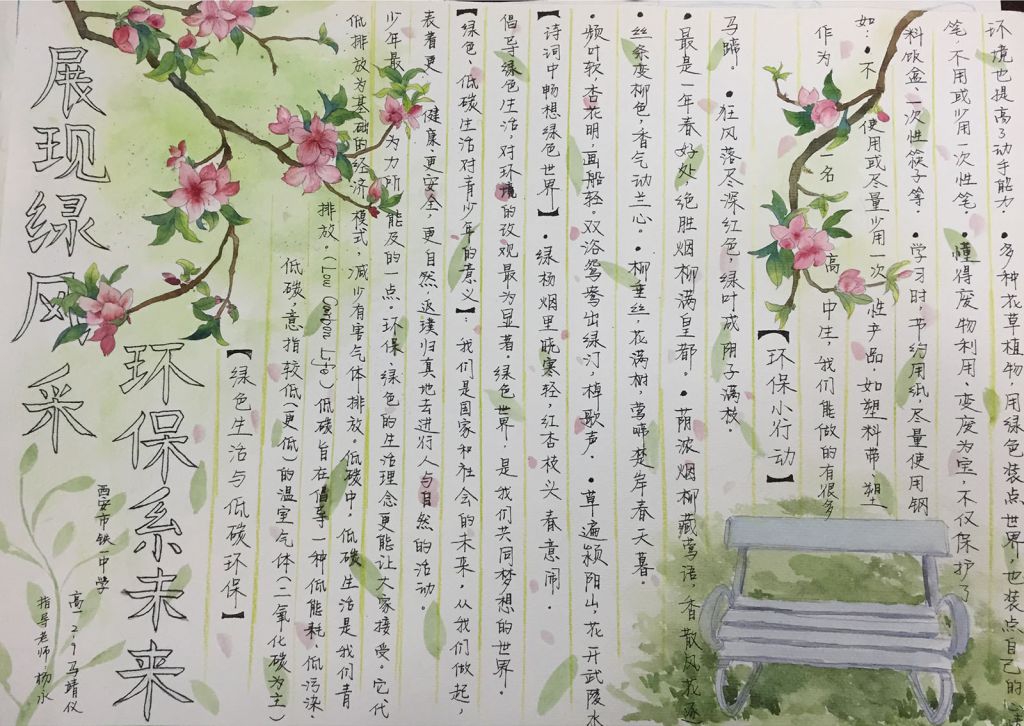 展现绿风采
环保系未来
西安市铁一中学
高一2.9 马靖仪
指导老师:杨永
【绿色生活与低碳环保】
低碳,意指较低(更低)的温室气体(二氧化碳为主)
排放。(Low Carbon Life)低碳旨在倡导一种低能耗、低污染、
低排放为基础的经济模式,减少有害气体排放。低碳中,低碳生活是我们青
少年最为力所能及的一点。环保、绿色的生活理念更能让大家接受。它代
表着更健康、更安全、更自然,返璞归真地去进行人与自然的活动。
【绿色、低碳生活对青少年的意义】:我们是国家和社会的未来,从我们做起,
倡导绿色生活,对环境的改观最为显著。绿色世界,是我们共同梦想的世界。
【诗词中畅想绿色世界】•绿杨烟里晓寒轻,红杏枝头春意闹。
•频叶软杏花明,画船轻。双浴鸳鸯出绿汀,棹歌声。•草遍颍阳山,花开武陵水
•丝条变柳色,香气动兰心。•柳垂丝,花满树,莺啼楚岸春天暮。
最是一年春好处,绝胜烟柳满皇都。•荫浓烟柳藏莺语,香散风花逐
马蹄。•狂风落尽深红色,绿叶成阴子满枝。
【环保小行动】
作为一名高中生,我们能做的有很多
如:•不使用或尽量少用一次性产品,如塑料带、塑
料饭盒、一次性筷子等。•学习时,书约用纸,尽量使用钢
笔,不用或少用一次性笔。•懂得废物利用、变废为宝,不仅保护了
环境也提高了动手能力。•多种花草植物,用绿色装点世界,也装点自己的心